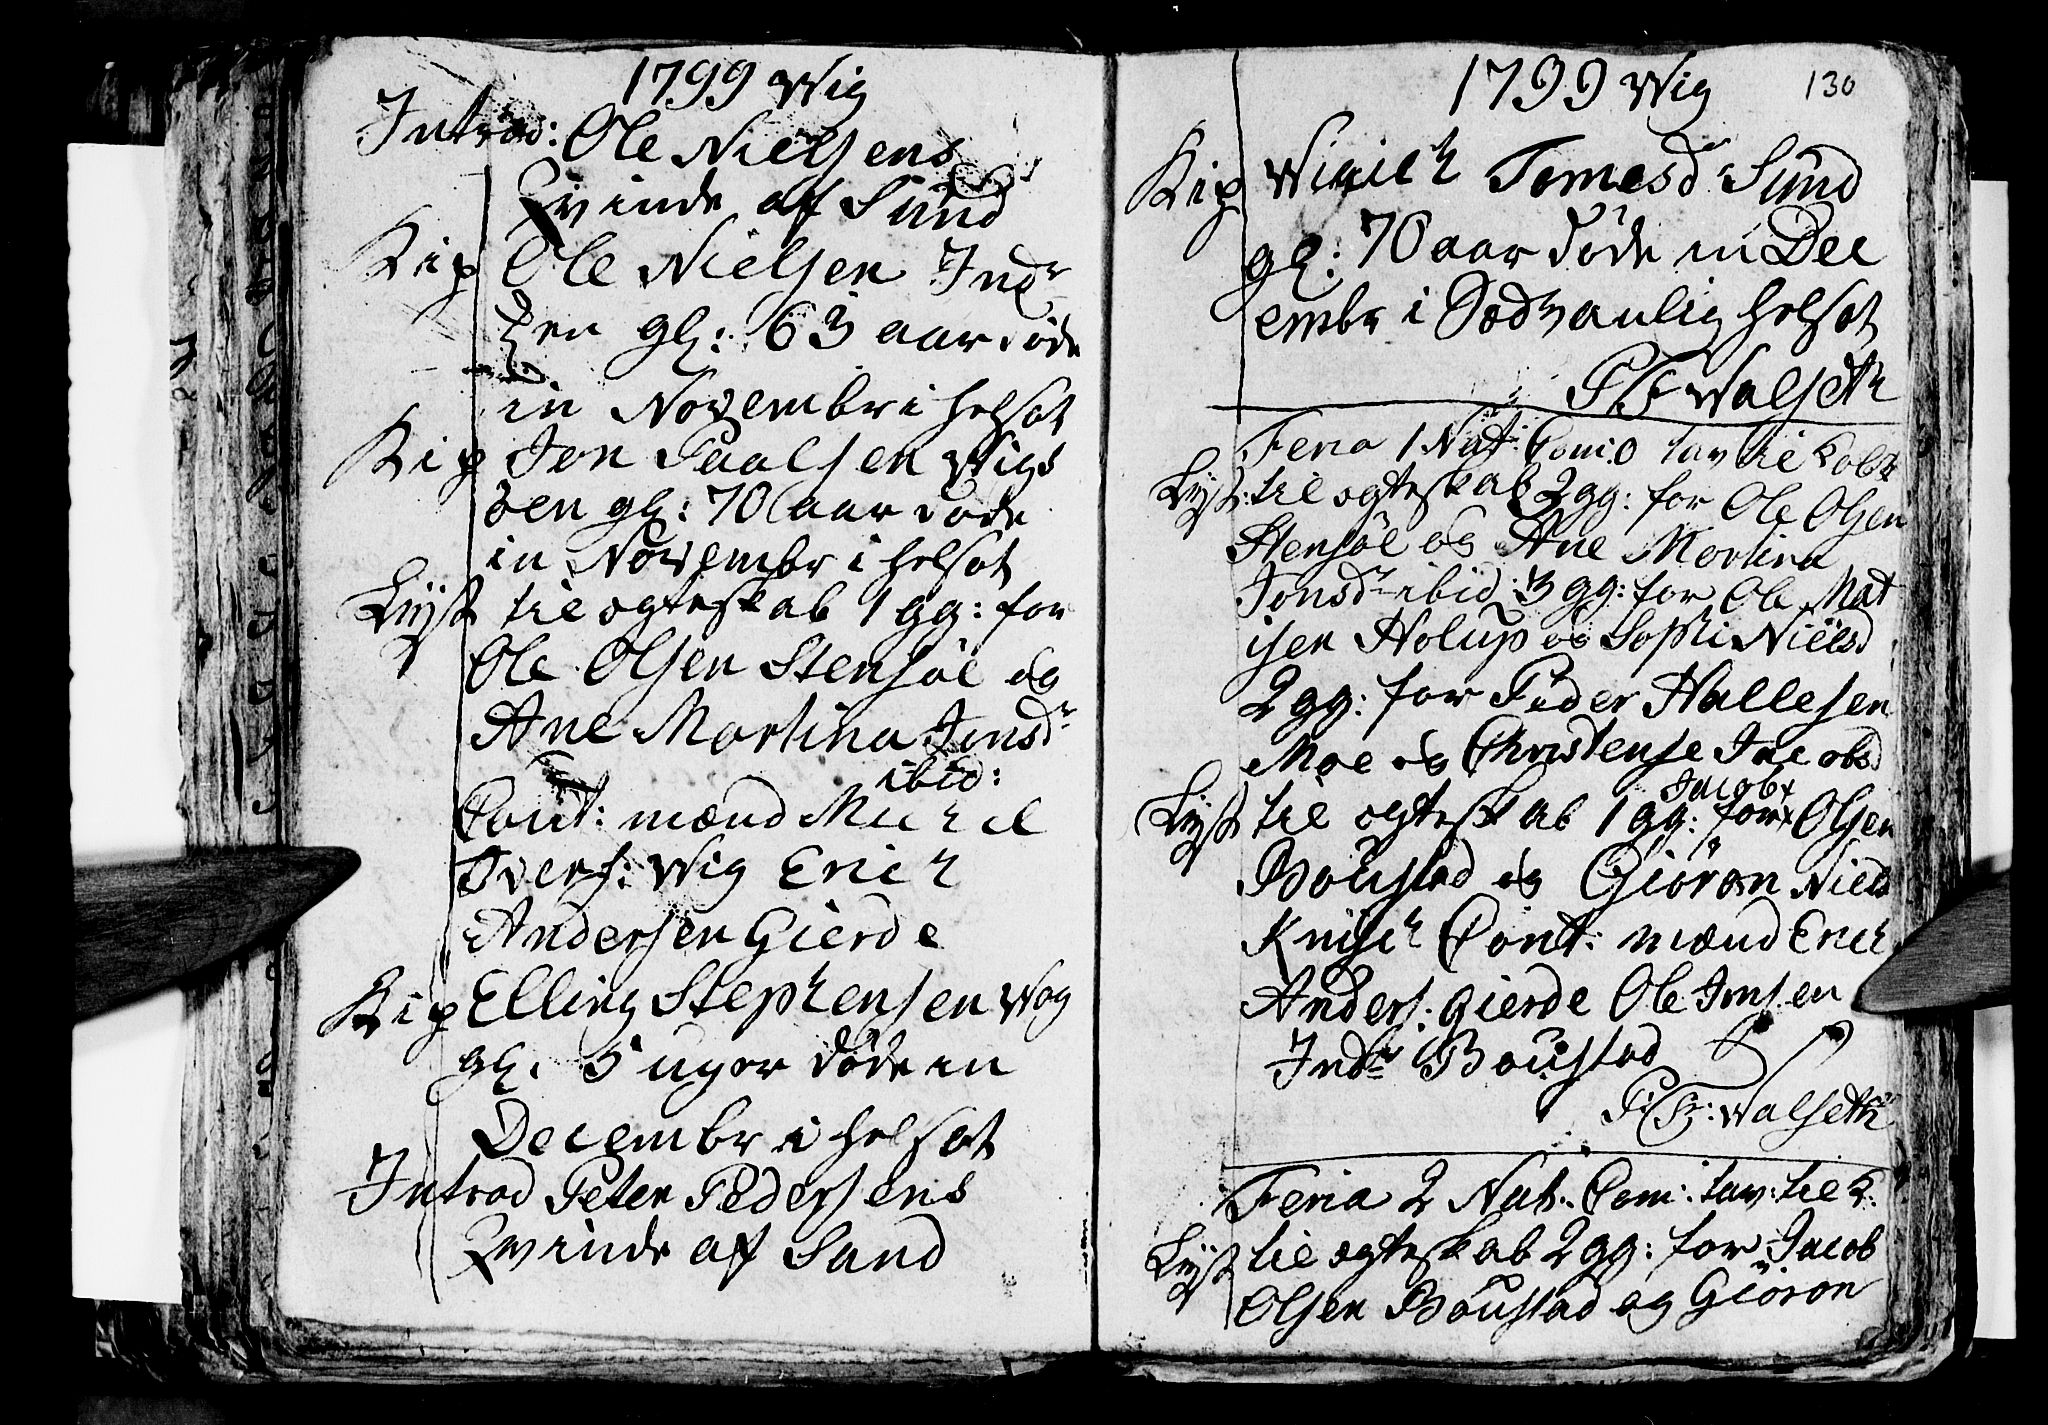 1799 Wig
Introd: Ole Nielsens
Qvinde af Sund
Kip Ole Nielsen Indr
gl: 63 aar døde
in Novembr i helsot
Kip Jon Paalsen Wigs
gl: 70 aar døde
in Novembr i helsot
Lyst til ægteskab 1 gg: for
Ole Olsen Stensøe og
Ane Martina Jonsdr
ibid:
Cout: mænd Michel
Ivers: Wig Erich
Andersen Gierde
Kip Elling Stephensen Wog
gl. 5 uger døde in
Decembr i helsot
Introd Peter Pedersens
Qvinde af Sand
1799 Wig 130
Kip Tomesdr Sund
gl: 70 aar døde in Dec
embr i Sædvanlig helsot
P F Walseth
Feria 1 Nat: Domi:
Lyst: til ægteskab 2 gg: for Ole Olsen
Stensøe og Ane Martina
Jonsdr ibid: 3 gg: for Ole Mat
isen Holup og Sophi Nielsd
2 gg: for Peder Hallesen
Moe og Christense Jacobsd
Jacob
Lyst til ægteskab 1 gg: for Olsen
Boustad og Giøron Niels
Cont: mænd Erich
Anders: Gierde Ole Jonsen
Indr Boustad
P: F: Walseth
Feria 2 Nat: Domi:
Lyst til ægteskab 2 gg: for Jacob
Olsen Boustad og Giøron